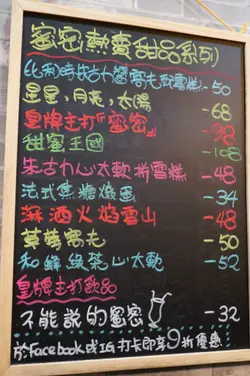 蜜密熱賣甜品系列
比利時朱古力窩夫配雪糕-50
星星,月亮,太陽 -68
皇牌主打「蜜密」 -98
甜蜜王國 -108
朱古力心太軟拼雪糕-48
法式焦糖燉蛋 -34
淋酒火焰雪山 -48
草莓窩夫 -50
和緣綠茶心太軟 -52
皇牌主打飲品
不能說的蜜密 -32
於Facebook或IG打卡即享9折優惠!